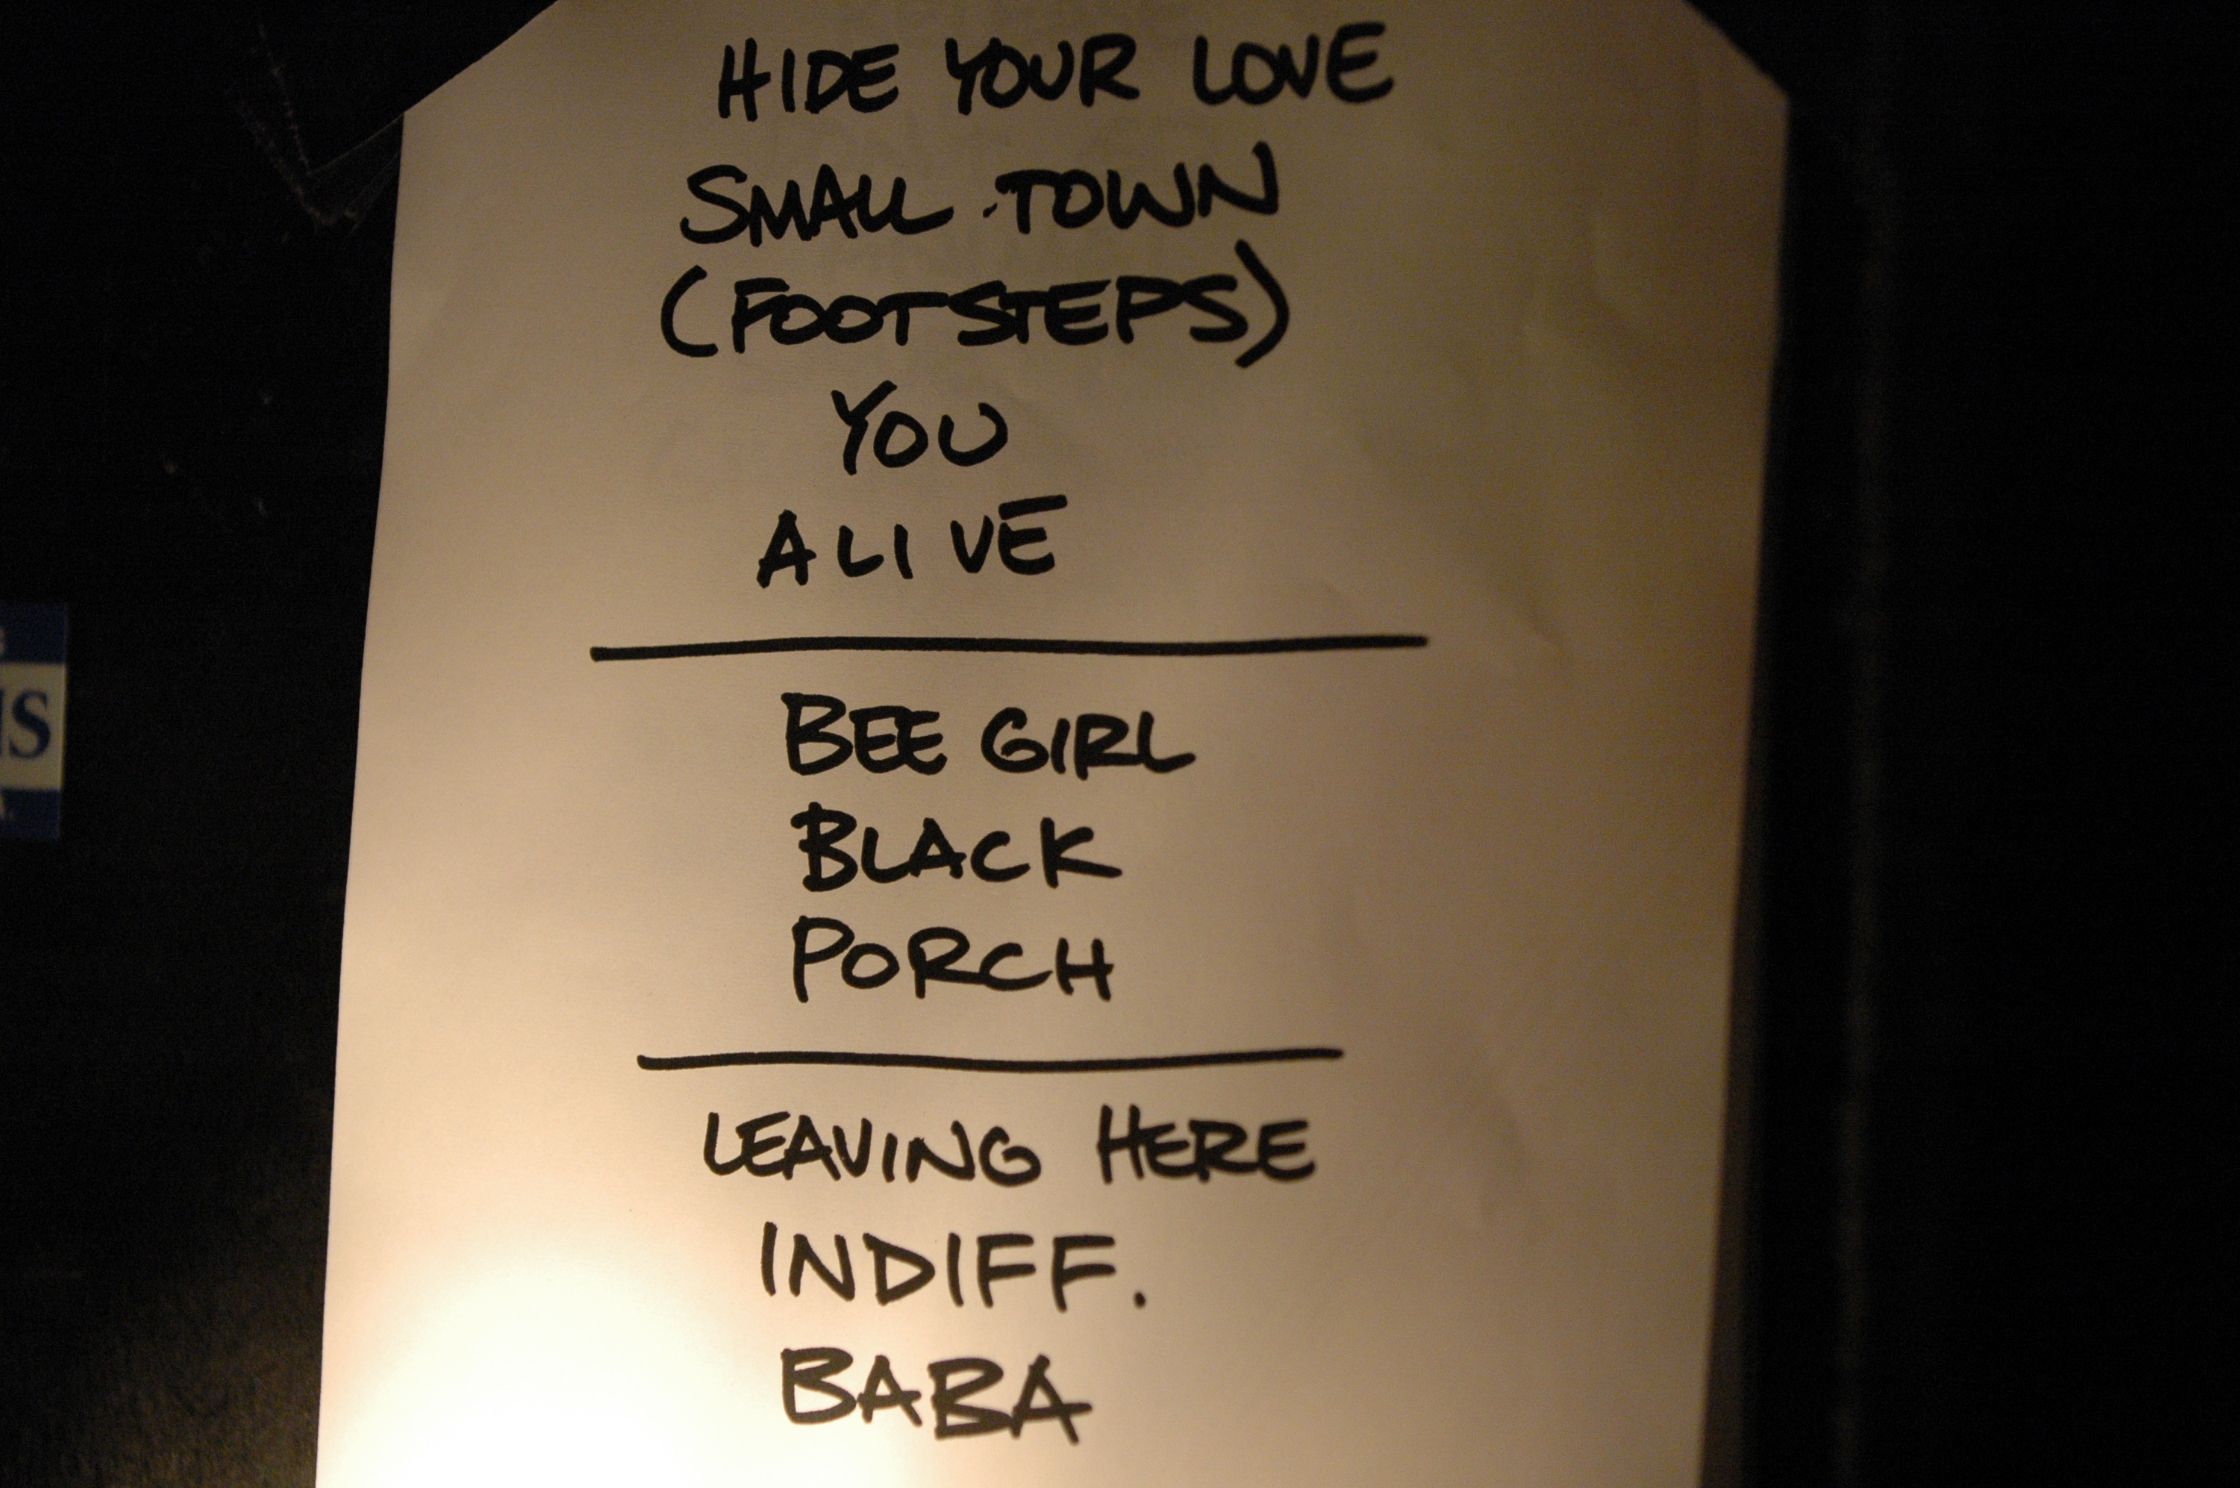 HIDE YOUR LOVE
SMALL TOWN
(FOOTSTEPS)
YOU
ALIVE
BEE GIRL
BLACK
PORCH
LEAVING HERE
INDIFF.
BABA